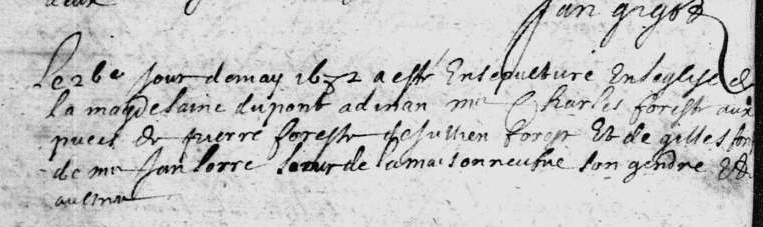 Jan gigot
Le 26e jour de may 1672 a esté Ensepulturé En leglise de
la magdelaine du pont a dinan me Charles forest aux
puces de pierre foreste de Jullien forest Et de gilles
de me Jan lorre sieur de la maisonneufve son gendre &
aultres